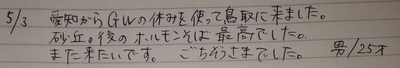 5/3 愛知からGWの休みを使って鳥取に来ました。
砂丘の後のホルモンそば最高でした。
また来たいです。 ごちそうさまでした。 男/25才